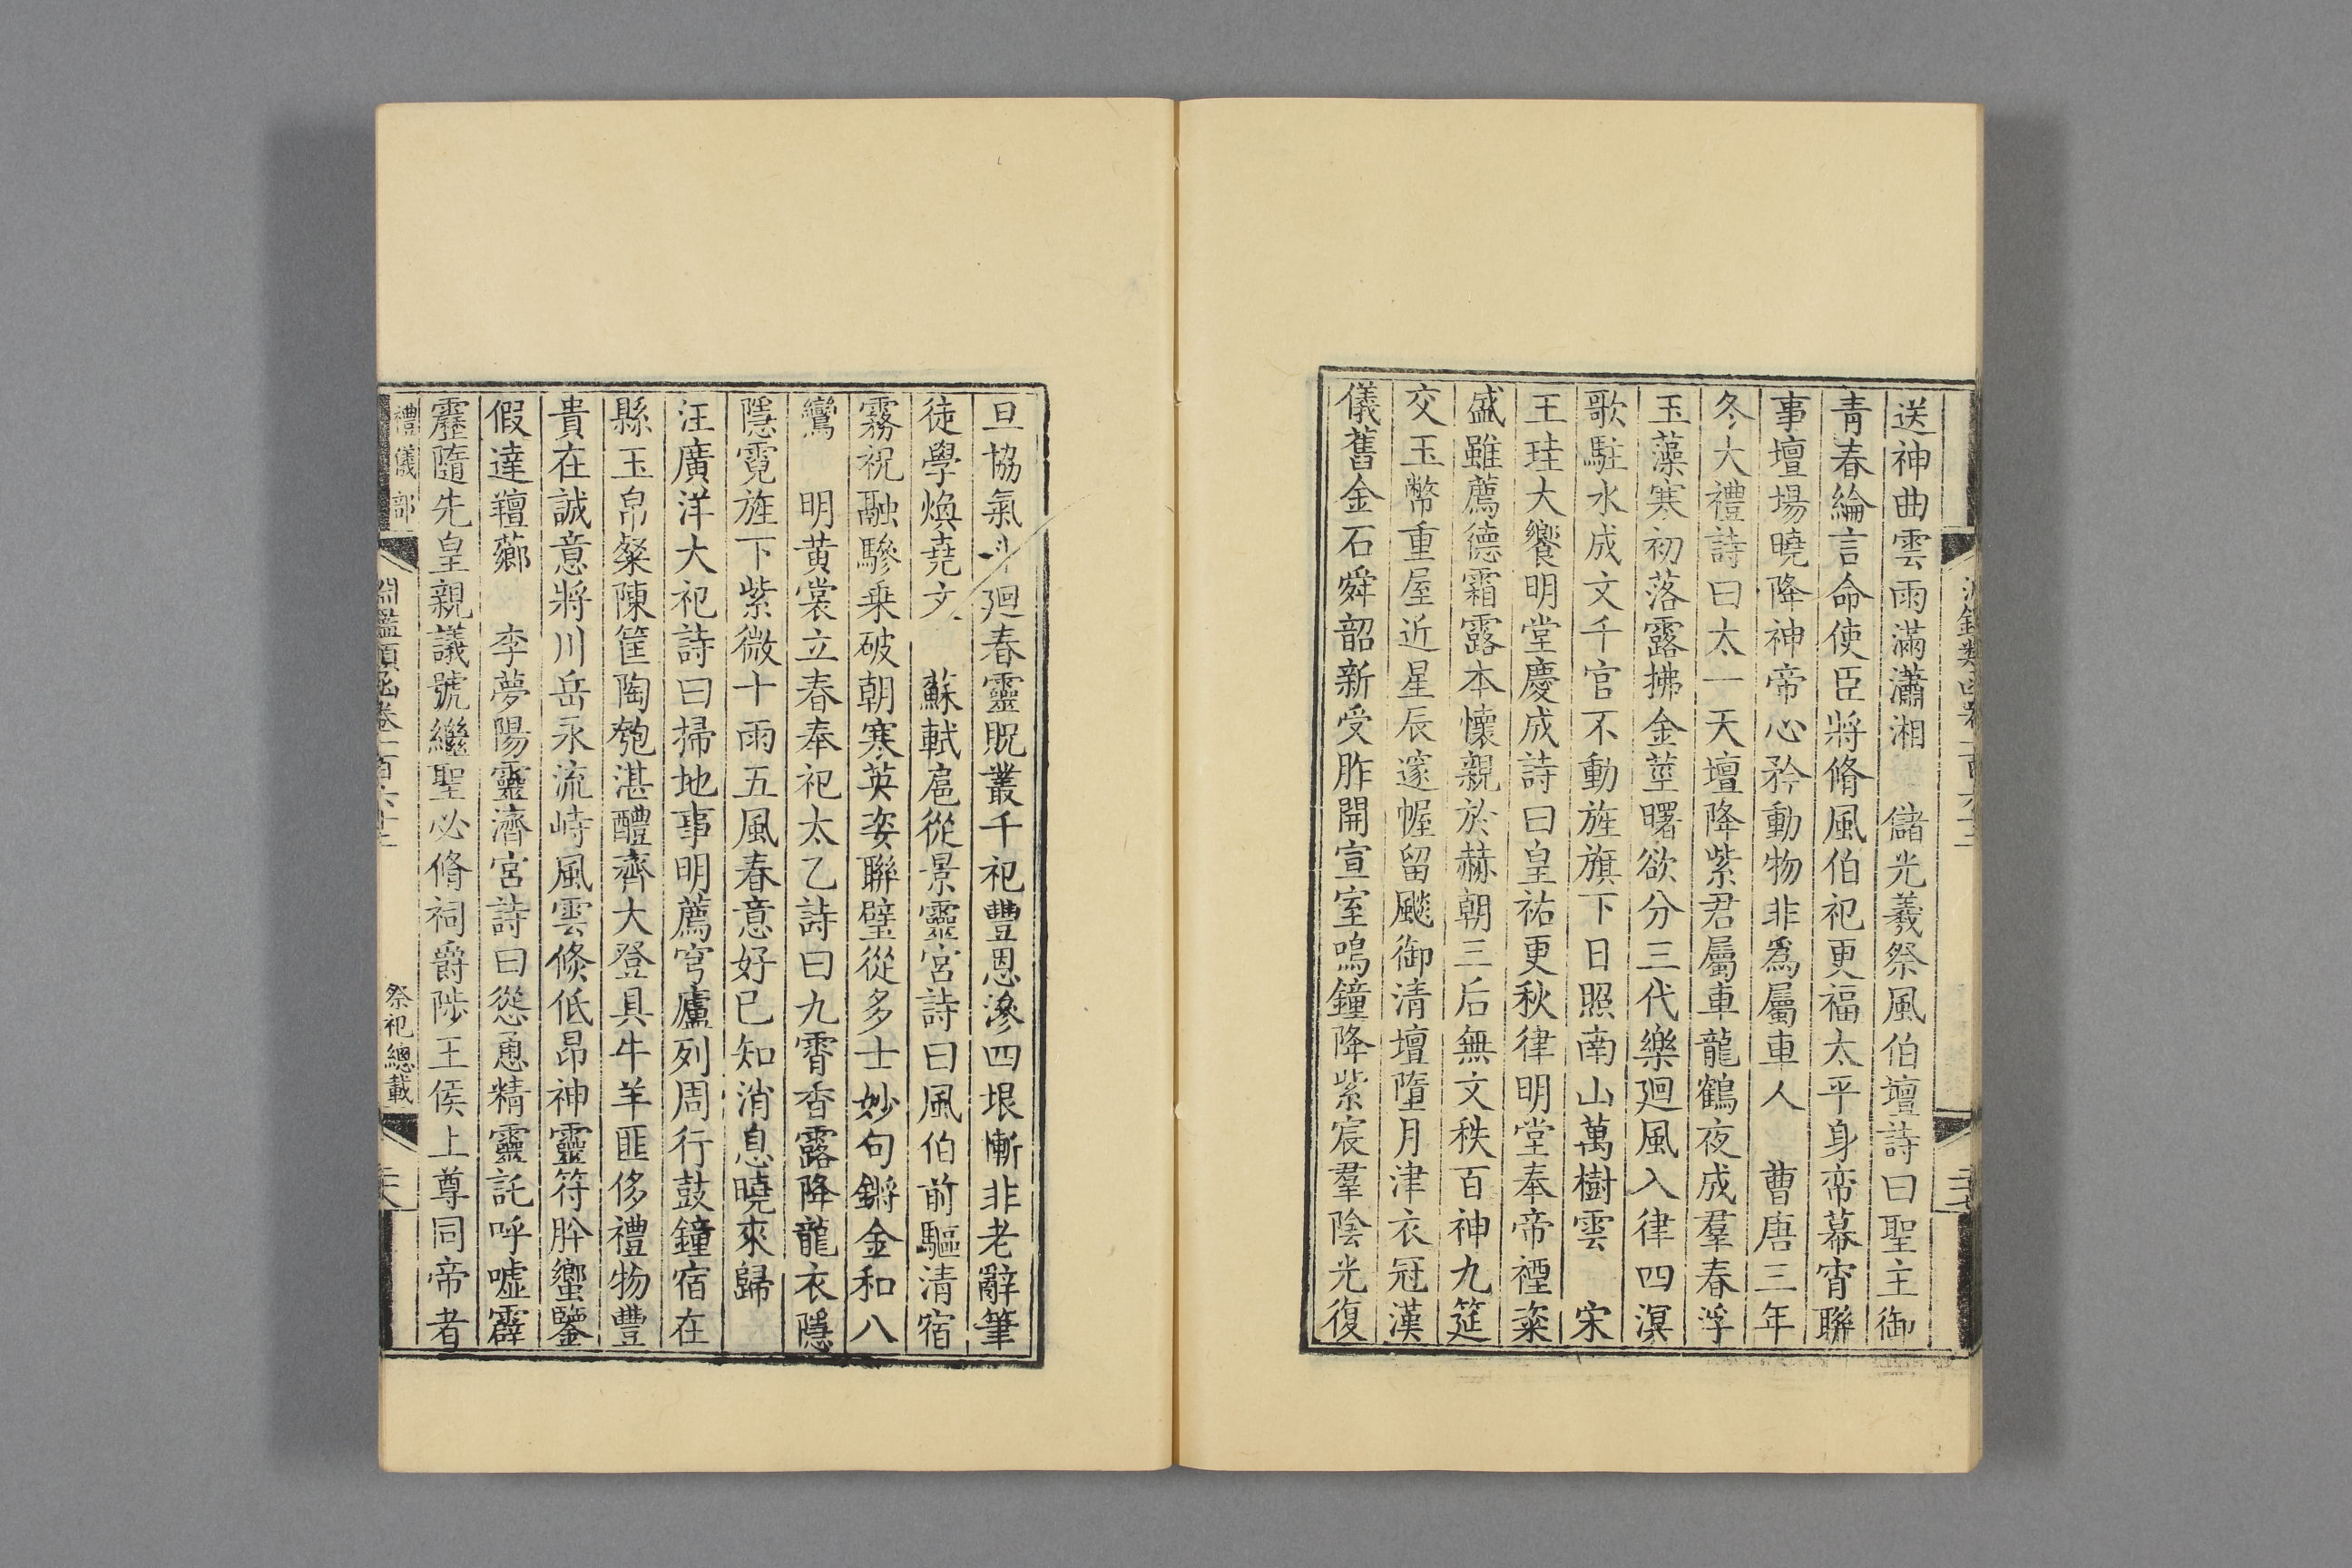 送神曲雲雨滿瀟湘　儲光羲祭風伯壇詩曰聖主御
青春綸言命使臣將脩風伯祀更福太平身帟幕宵聯
事壇場曉降神帝心矜動物非爲屬車人　曹唐三年
冬大禮詩曰太一天壇降紫君屬車龍鶴夜成羣春浮
玉藻寒初落露拂金莖曙欲分三代樂廻風入律四溟
歌駐水成文千官不動旌旗下日照南山萬樹雲　宋
王珪大饗明堂慶成詩曰皇祐更秋律明堂奉帝禋粢
盛雖薦德霜露本懷親於赫朝三后無文秩百神九筵
交玉幣重屋近星辰邃幄留飇御清壇墮月津衣冠漢
儀舊金石舜韶新受胙開宣室鳴鐘降紫宸羣陰光復
旦協氣斗廻春靈貺叢千祀豐恩滲四垠慚非老辭筆
徒學煥堯文　蘇軾扈從景靈宮詩曰風伯前驅清宿
霧祝融驂乗破朝寒英姿聯璧從多士妙句鏘金和八
鸞　明黄裳立春奉祀太乙詩曰九霄香露降龍衣隱
隱霓旌下紫微十雨五風春意好已知消息曉來歸
汪廣洋大祀詩曰掃地事明薦穹廬列周行鼓鐘宿在
縣玉帛粲陳筐陶匏湛醴齊大登具牛羊匪侈禮物豐
貴在誠意將川岳永流峙風雲倐低昂神靈符肸蠁鑒
假達羶薌　李夢陽靈濟宮詩曰慫慂精靈託呼噓霹
靂隨先皇親議號繼聖必脩祠爵陟王侯上尊同帝者
禮儀部
淵鑑類函卷一百六十三
祭祀總載
二十八